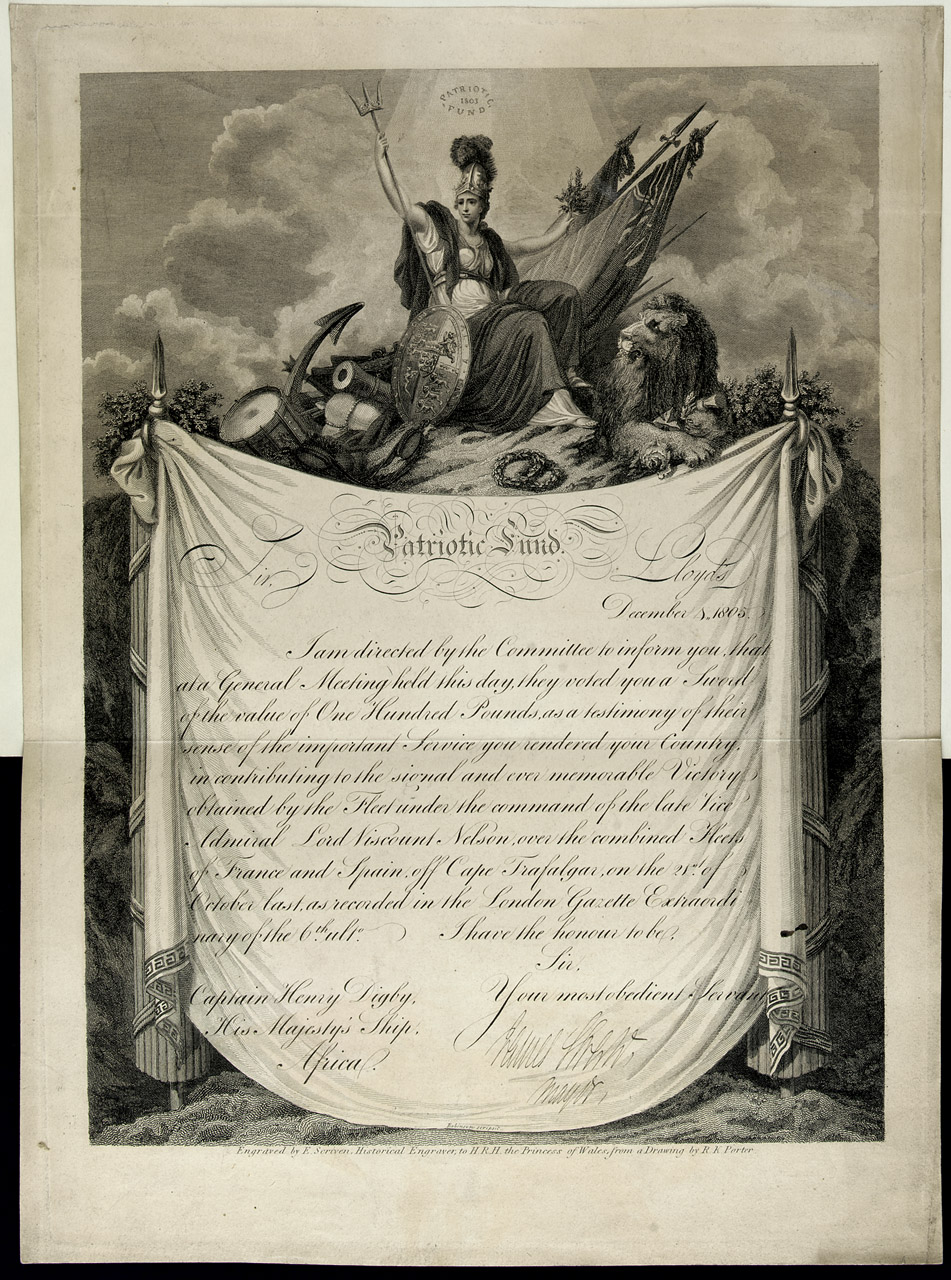 PATRIOTIC
1803
FUND
Patriotic Fund.
Sir, Lloyd's
December 3, 1805.
I am directed by the Committee to inform you, that
at a General Meeting held this day, they voted you a Sword
of the value of One Hundred Pounds, as a testimony of their
sense of the important Service you rendered your Country,
in contributing to the signal and ever memorable Victory
obtained by the Fleet under the command of the late Vice
Admiral Lord Viscount Nelson, over the combined Fleets
of France and Spain, off Cape Trafalgar, on the 21st of
October last, as recorded in the London Gazette Extraordi
nary of the 6th ulto. I have the honour to be,
Sir,
Captain Henry Digby, Your most obedient Servant
His Majesty's Ship,
Africa.
Engraved by E. Scriven, Historical Engraver, to H.R.H. the Princess of Wales, from a Drawing by R. K. Porter